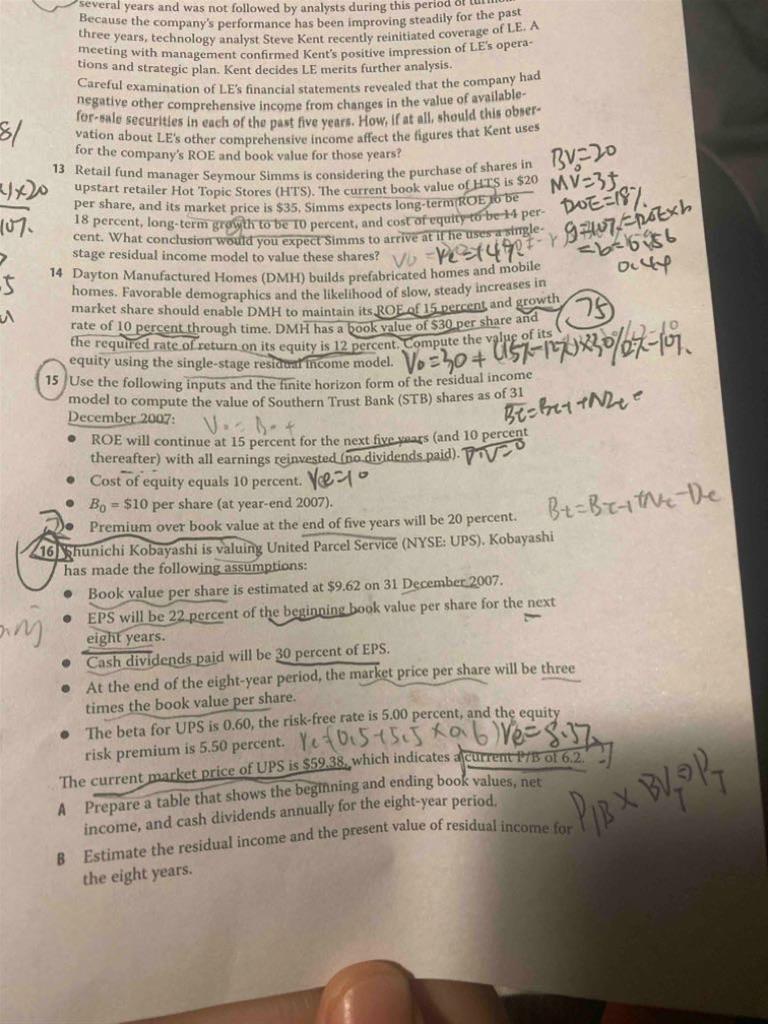 several years and was not followed by analysts during this period of
Because the company's performance has been improving steadily for the past
three years, technology analyst Steve Kent recently reinitiated coverage of LE. A
meeting with management confirmed Kent's positive impression of LE's opera-
tions and strategic plan. Kent decides LE merits further analysis.
Careful examination of LE's financial statements revealed that the company had
negative other comprehensive income from changes in the value of available-
for-sale securities in each of the past five years. How, if at all, should this obser-
vation about LE's other comprehensive income affect the figures that Kent uses
for the company's ROE and book value for those years?
8/
13 Retail fund manager Seymour Simms is considering the purchase of shares in
upstart retailer Hot Topic Stores (HTS). The current book value of HTS is $20
per share, and its market price is $35. Simms expects long-term ROE to be
18 percent, long-term growth to be 10 percent, and cost of equity to be 14 per-
cent. What conclusion would you expect Simms to arrive at if he uses a single-
stage residual income model to value these shares?
BV₀=20
MV=35
ROE=18%
g=10%=ROE×b
14 Dayton Manufactured Homes (DMH) builds prefabricated homes and mobile
homes. Favorable demographics and the likelihood of slow, steady increases in
market share should enable DMH to maintain its ROE of 15 percent and growth
rate of 10 percent through time. DMH has a book value of $30 per share and
the required rate of return on its equity is 12 percent. Compute the value of its
equity using the single-stage residual income model.
75
V₀=30+(15%-12%)×30/12%-10%
15 Use the following inputs and the finite horizon form of the residual income
model to compute the value of Southern Trust Bank (STB) shares as of 31
December 2007:
• ROE will continue at 15 percent for the next five years (and 10 percent
thereafter) with all earnings reinvested (no dividends paid).
• Cost of equity equals 10 percent.
• B₀ = $10 per share (at year-end 2007).
• Premium over book value at the end of five years will be 20 percent.
16 Shunichi Kobayashi is valuing United Parcel Service (NYSE: UPS). Kobayashi
has made the following assumptions:
• Book value per share is estimated at $9.62 on 31 December 2007.
• EPS will be 22 percent of the beginning book value per share for the next
eight years.
• Cash dividends paid will be 30 percent of EPS.
• At the end of the eight-year period, the market price per share will be three
times the book value per share.
• The beta for UPS is 0.60, the risk-free rate is 5.00 percent, and the equity
risk premium is 5.50 percent.
The current market price of UPS is $59.38, which indicates a current P/B of 6.2.
A Prepare a table that shows the beginning and ending book values, net
income, and cash dividends annually for the eight-year period.
B Estimate the residual income and the present value of residual income for
the eight years.